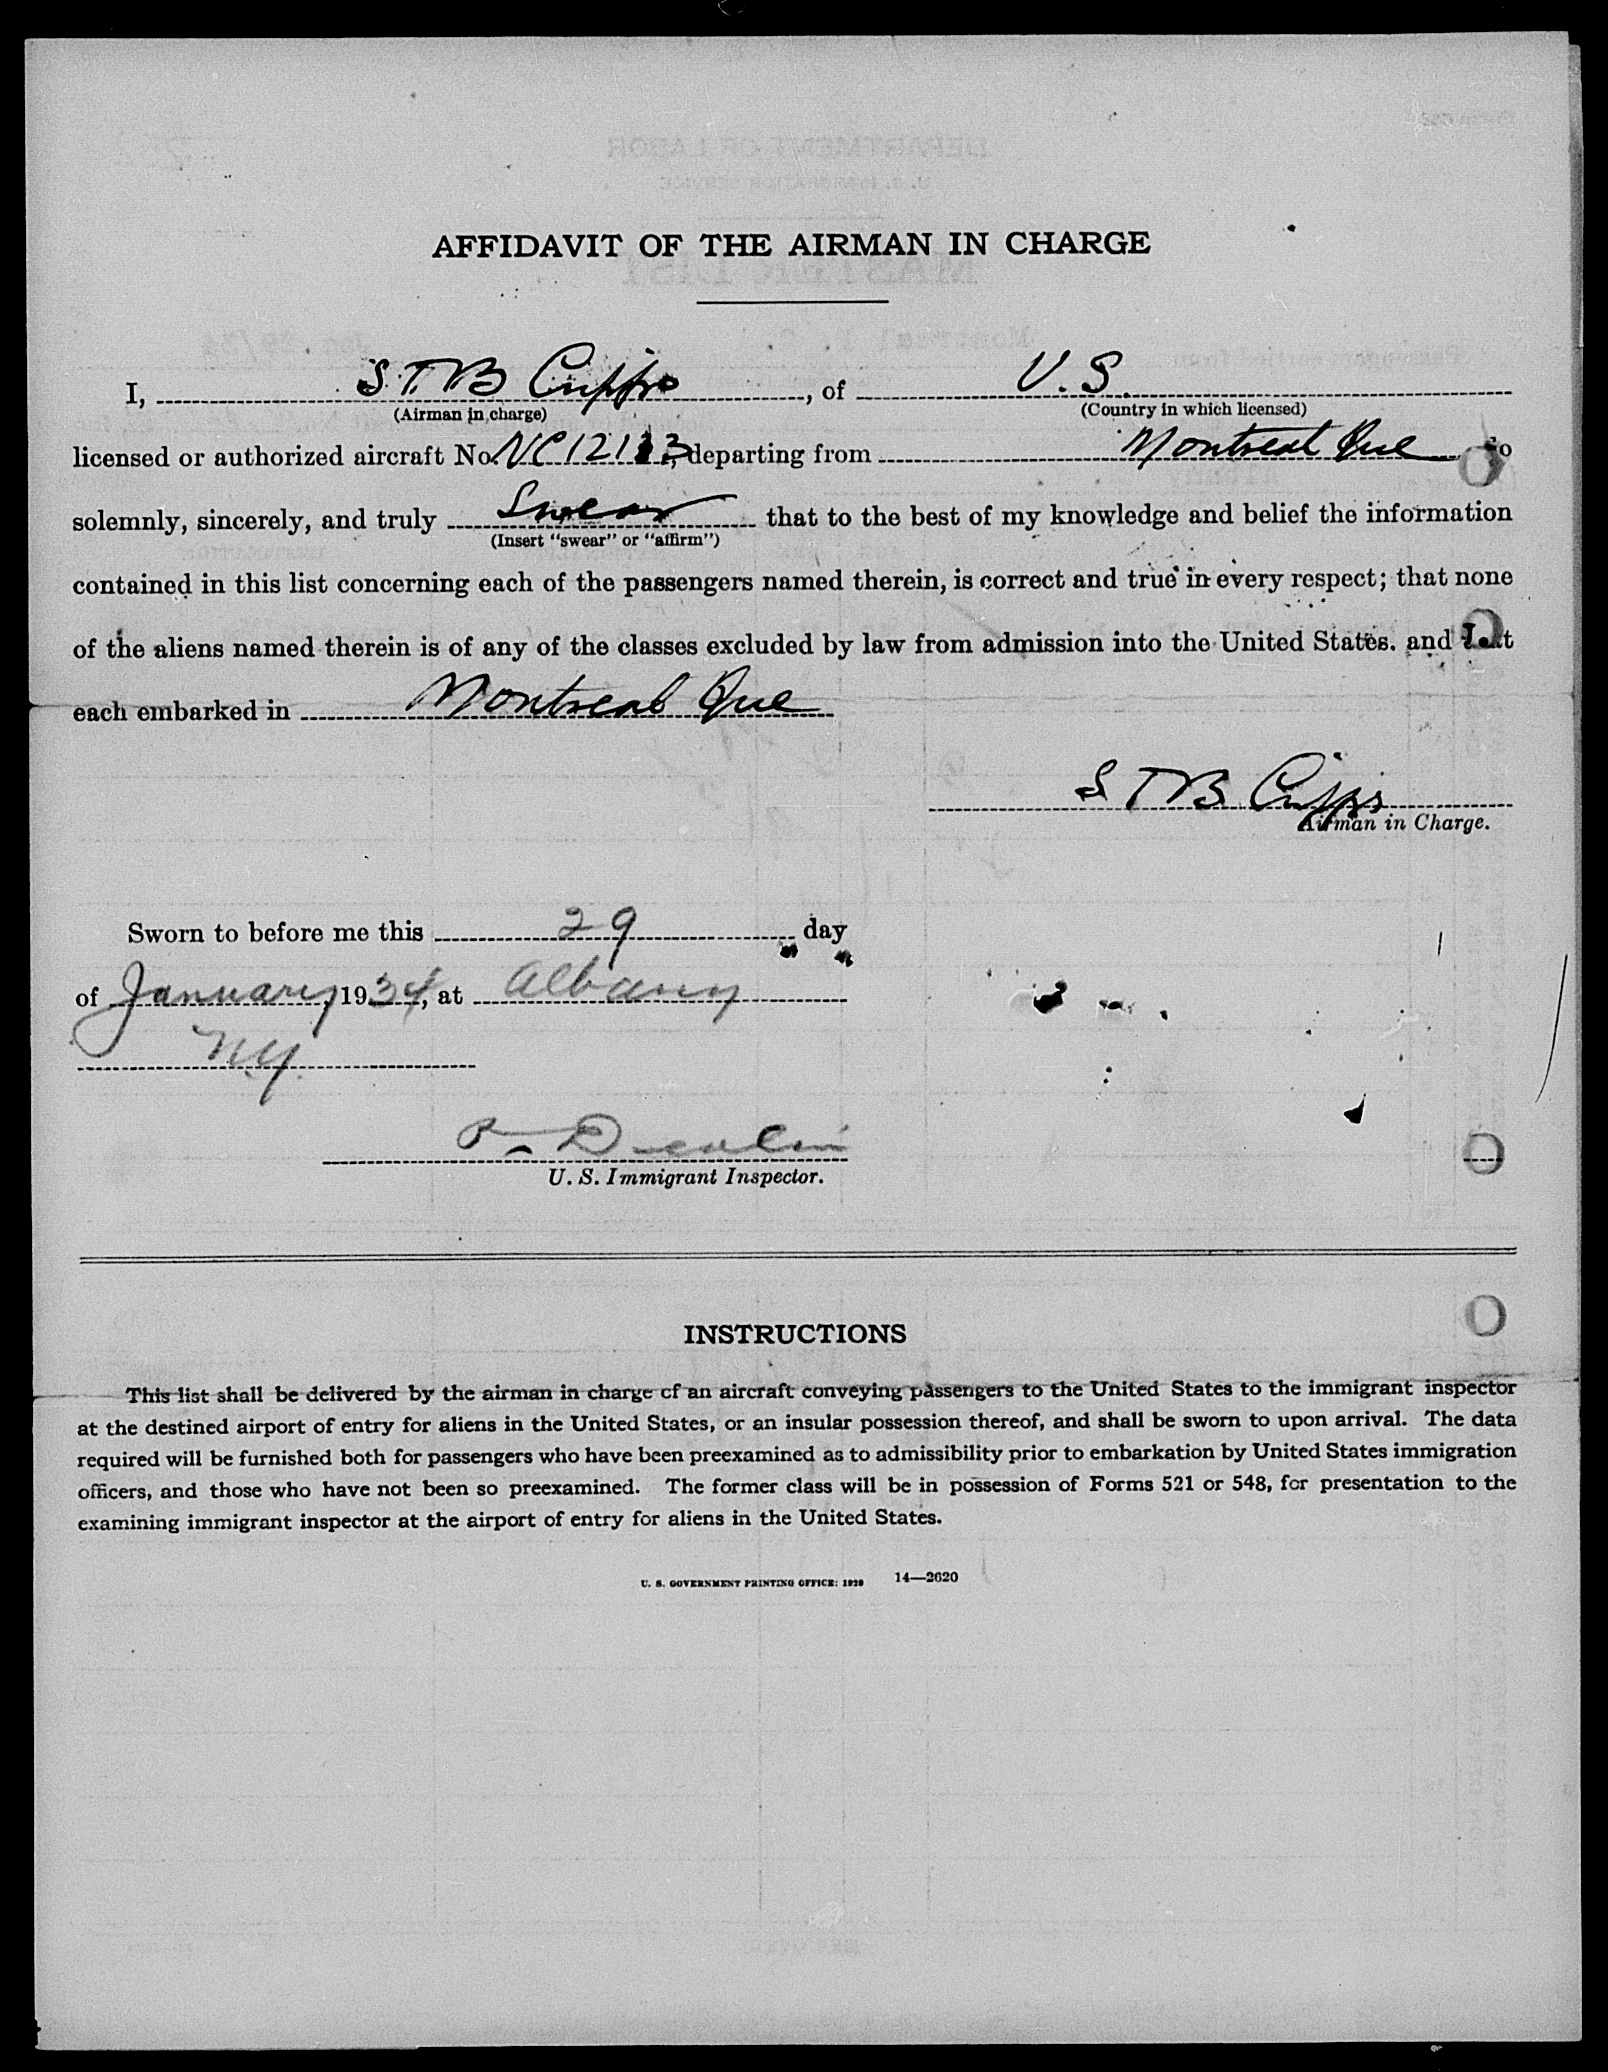 AFFIDAVIT OF THE AIRMAN IN CHARGE
I, S T B Cripps, of U. S.
(Airman in charge) (Country in which licensed)
licensed or authorized aircraft No. NC12133, departing from Montreal Que do
solemnly, sincerely, and truly Swear that to the best of my knowledge and belief the information
(Insert "swear" or "affirm")
contained in this list concerning each of the passengers named therein, is correct and true in every respect; that none
of the aliens named therein is of any of the classes excluded by law from admission into the United States. and that
each embarked in Montreal Que
S T B Cripps
Airman in Charge.
Sworn to before me this 29 day
of January, 1934, at Albany
NY.
U. S. Immigrant Inspector.
INSTRUCTIONS
This list shall be delivered by the airman in charge of an aircraft conveying passengers to the United States to the immigrant inspector
at the destined airport of entry for aliens in the United States, or an insular possession thereof, and shall be sworn to upon arrival. The data
required will be furnished both for passengers who have been preexamined as to admissibility prior to embarkation by United States immigration
officers, and those who have not been so preexamined. The former class will be in possession of Forms 521 or 548, for presentation to the
examining immigrant inspector at the airport of entry for aliens in the United States.
U. S. GOVERNMENT PRINTING OFFICE: 1929 14—2620